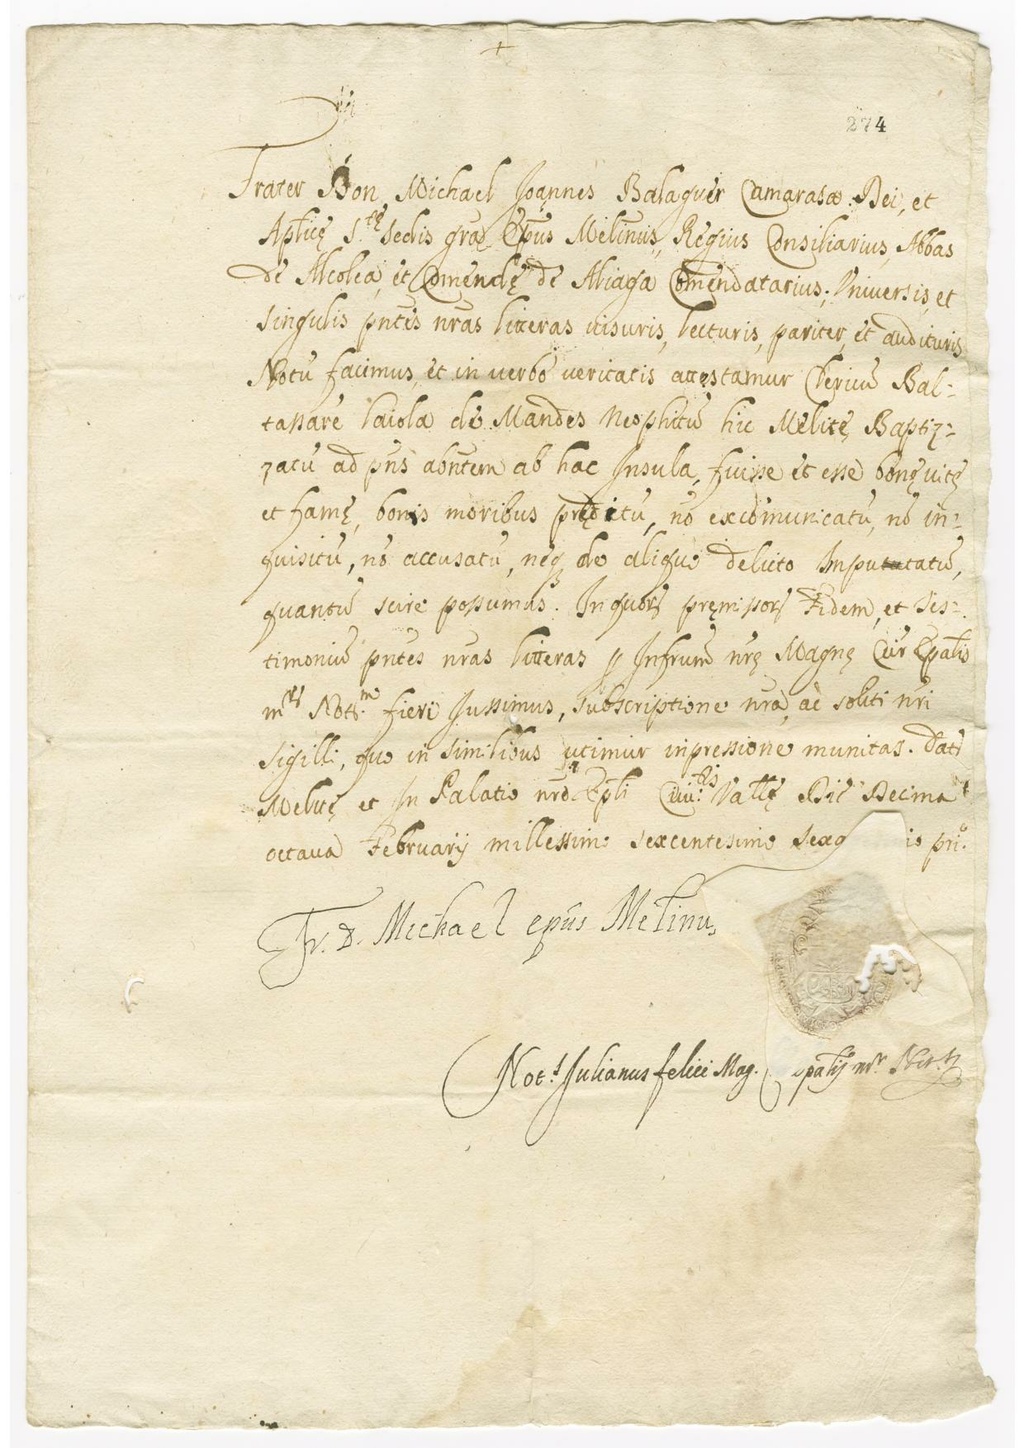 274
Frater Don Michael Joannes Balaguer Camarasa Dei, et
Aplicę S.tę Sedis gra Epus Melinus, Regius Consiliarius, Abbas
de Alcolea, et Comendę de Aliaga Comendatarius; Vniuersis, et
singulis pntes nras litteras uisuris, lecturis, pariter, et audituris
Notu facimus, et in uerbo ueritatis attestamur Clericu Bal-
tassare Laiola de Mandes Neophitu hic Melitę Baptiz-
zatu ad pns abntem ab hac Insula, fuisse et esse bonę uitę
et famę, bonis moribus prędictu, no excomunicatu, no in-
quisitu, no accusatu, neq de aliquo delicto Imputatu,
quantu scire possumus. In quor pręmissor Fidem, et tes-
timoniu pntes nras litteras p Infrum nrę Magnę Cur Epalis
Notr. fieri Jussimus, subscriptione nra, ac soliti nri
sigilli, quo in similibus utimur inpressione munitas. Dat
Melitę et In Palatio nro Epli Ciu.tis Vallę Die Decima
octaua February millessimo sexcentesimo sexg io pri.o
Fr. D. Michael epus Melinus
Not.s Julianus felici Mag. C epalis mr Not.